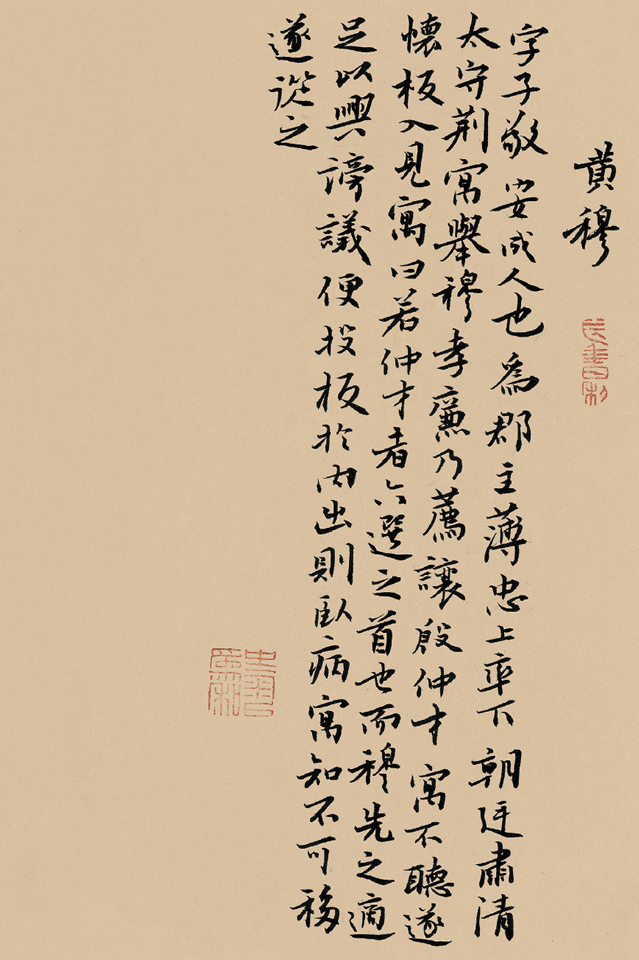 黄穆
字子敬安成人也為郡主薄忠上率下朝廷肅清
太守荊寓舉穆孝廉乃薦讓殷仲才寓不聽遂
懷板入見寓曰若仲才者六選之首也而穆先之適
足以興謗議便投板於內出則臥病寓知不可移
遂從之